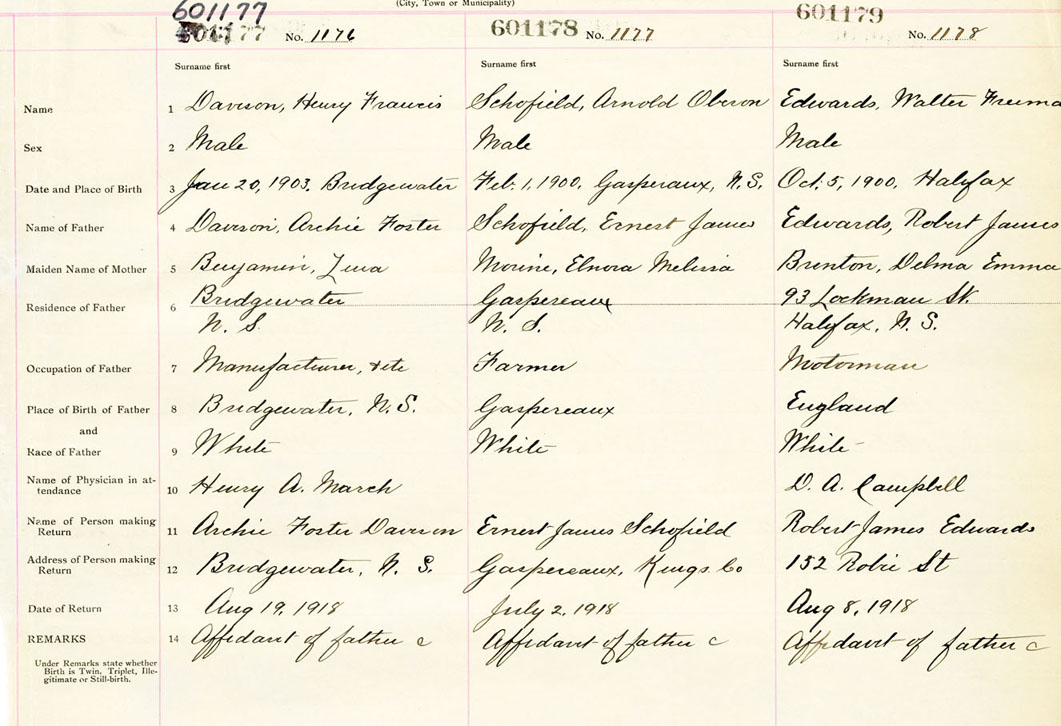 (City, Town or Municipality)
601177
601177 No. 1176 601178 No. 1177 601179 No. 1178
Surname first Surname first Surname first
Name 1 Davison, Henry Francis Schofield, Arnold Oberon Edwards, Walter
Sex 2 Male Male Male
Date and Place of Birth 3 Jan 20, 1903, Bridgewater Feb. 1, 1900, Gasperaux, N.S. Oct. 5, 1900, Halifax
Name of Father 4 Davison, Archie Foster Schofield, Ernest James Edwards, Robert James
Maiden Name of Mother 5 Benjamin, Lena Morine, Elnora Melissa Brenton, Delma Emma
Residence of Father 6 Bridgewater Gaspereaux 93 Lockman St.
N. S. N. S. Halifax, N. S.
Occupation of Father 7 Manufacturer, &etc Farmer Motorman
Place of Birth of Father 8 Bridgewater, N.S. Gaspereaux England
and
Race of Father 9 White White White
Name of Physician in at-
tendance 10 Henry A. March D. A. Campbell
Name of Person making
Return 11 Archie Foster Davison Ernest James Schofield Robert James Edwards
Address of Person making
Return 12 Bridgewater, N. S. Gaspereaux, Kings Co 152 Robie St
Date of Return 13 Aug 19, 1918 July 2, 1918 Aug 8, 1918
REMARKS 14 Affidavit of father c Affidavit of father c Affidavit of father c
Under Remarks state whether
Birth is Twin, Triplet, Ille-
gitimate or Still-birth.